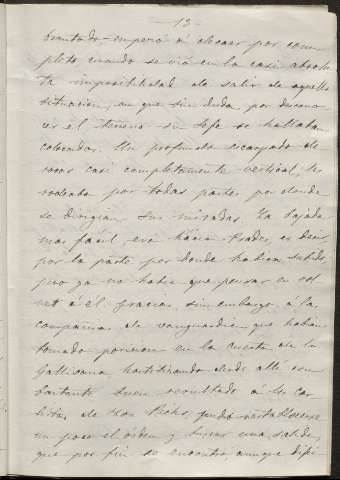 - 13 -
brantado, empezó á decaer por com-
pleto, cuando se vió en la casi absolu-
ta imposibilidad de salir de aquella
situacion, en que sin duda por descono-
cer el terreno su Jefe se hallaban
colocados. Un profundo escarpado de
rocas casi completamente vertical, les
rodeaba por todas partes por donde
se dirigian sus miradas. La bajada
mas fácil, era hácia Prades, es decir,
por la parte por donde habian subido,
pero ya no habia que pensar en vol-
ver á él. Gracias, sin embargo, á la
compañia de vanguardia, que habia
tomado posicion en la cuesta de la
Gallicana hostilizando desde alli con
bastante buen resultado á los car-
listas, de tres pudo restablecerse
un poco el órden y buscar una salida,
que por fin se encontró, aunque difi-